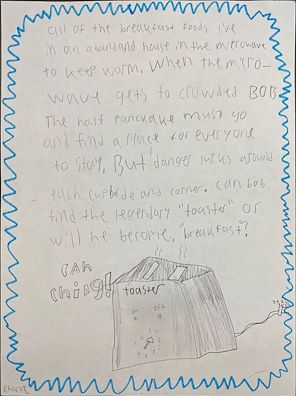 all of the breakfast foods live
in an abandand house in the microwave
to keep worm. When the micro-
wave gets to crowded BOB
The half pancake must go
and find a place for everyone
to stay, But danger lurks around
each cuperde and corner. can bob
find the legendary "toaster" or
will he become, "breakfast"?
CAH
ching!
toaster
on off